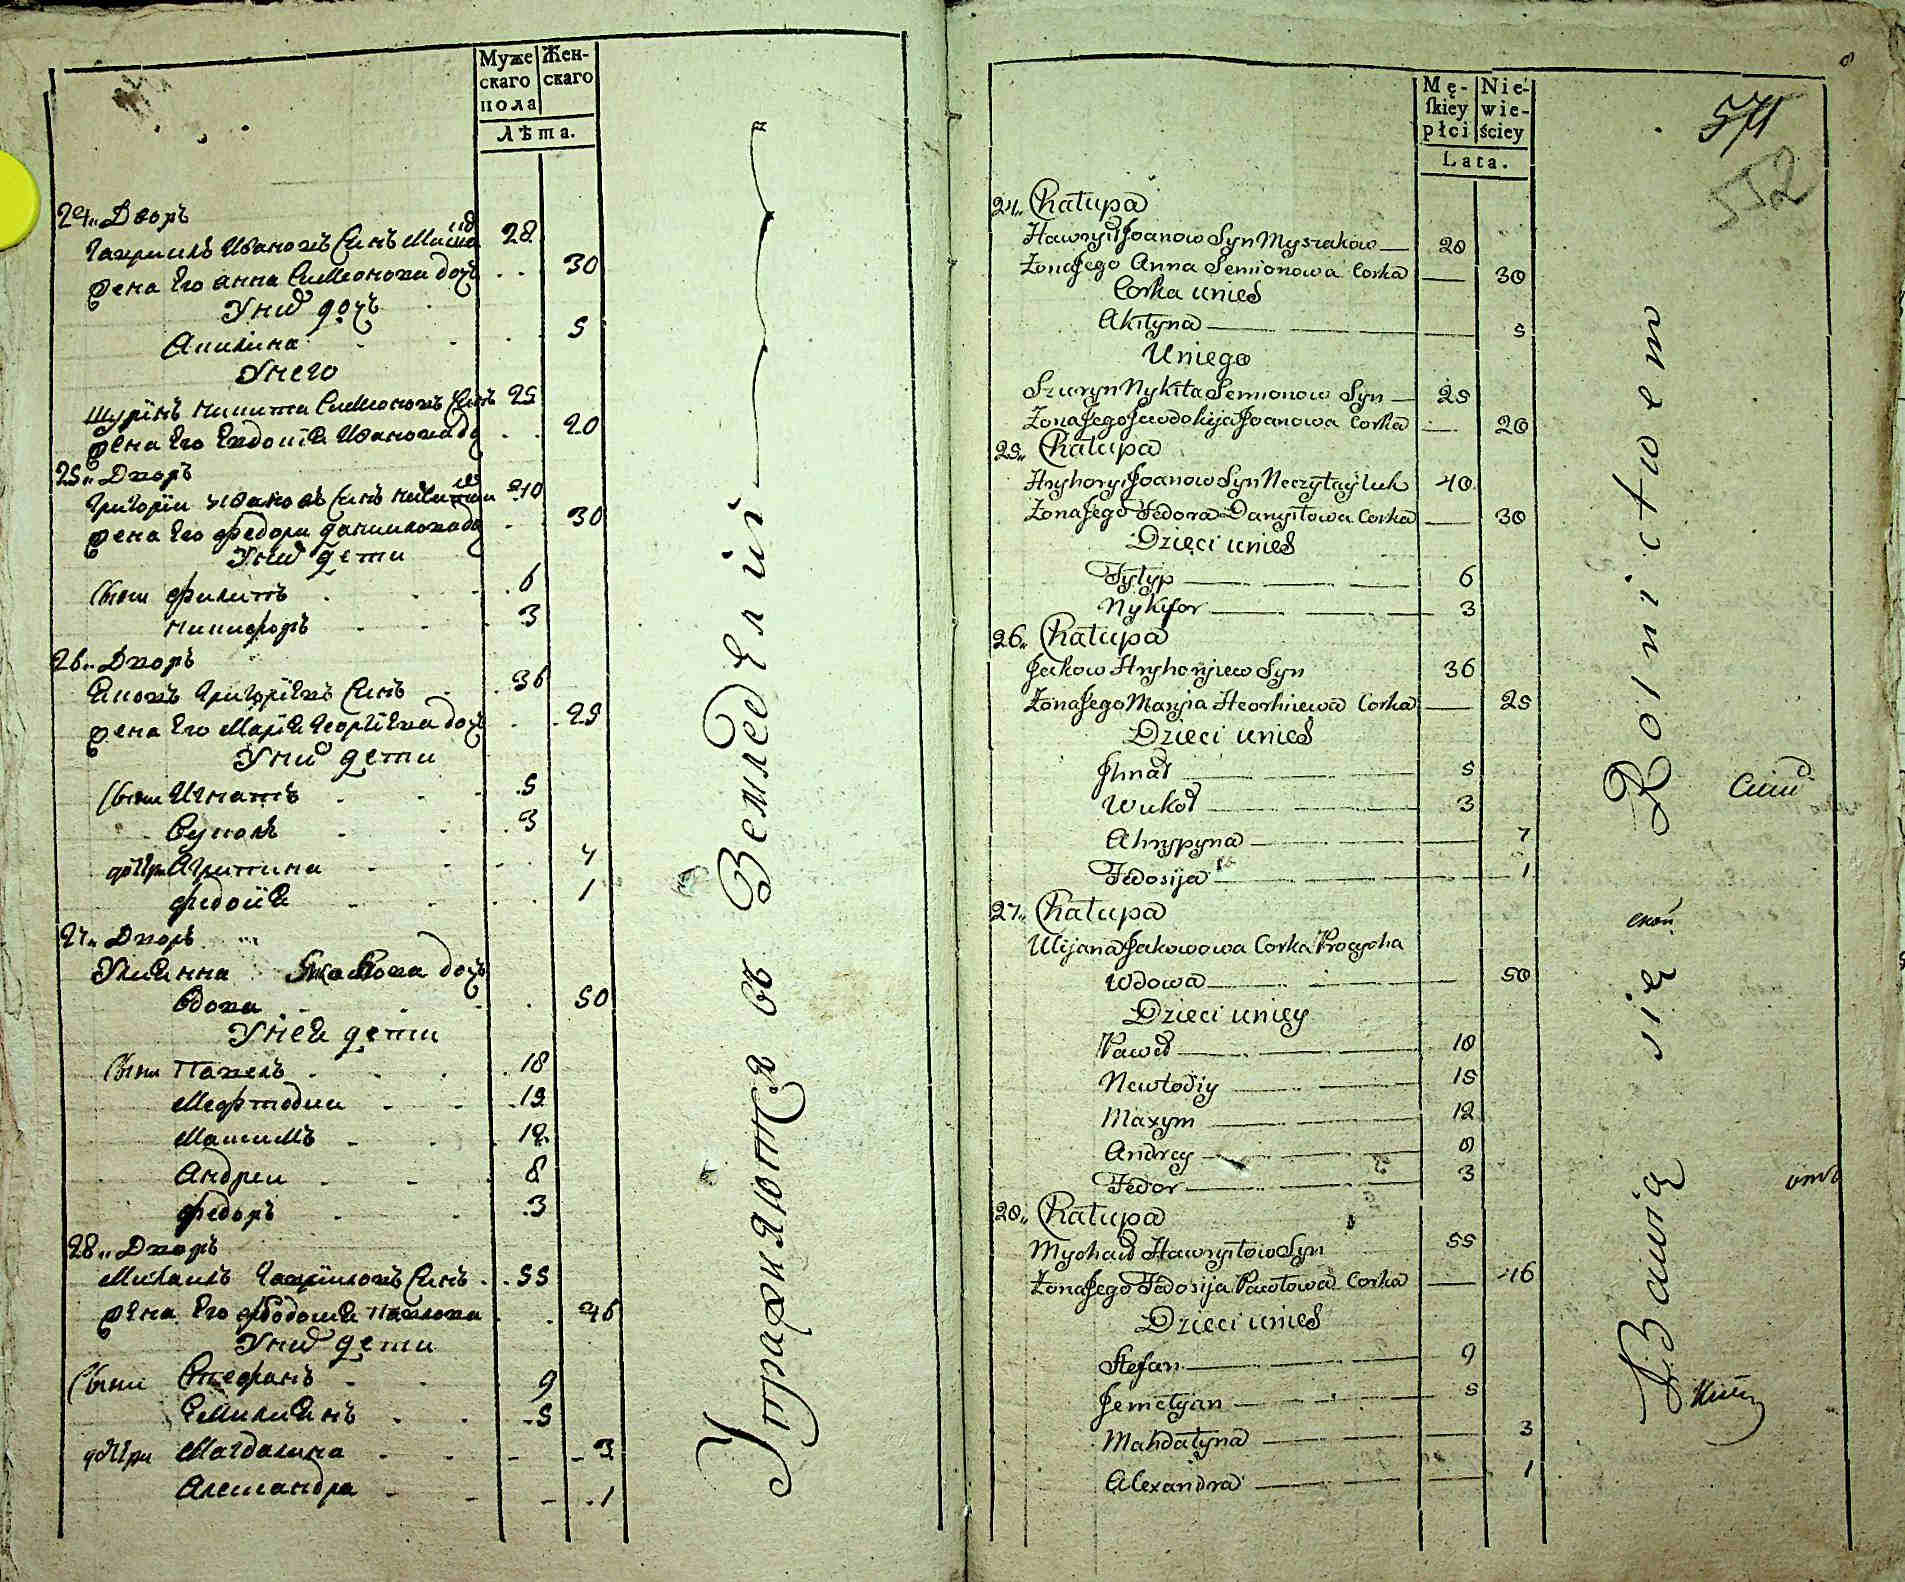 Муже
скаго
пола
Жен-
скаго
Лѣта.
24„ Дворъ
Гаврилъ Ивановъ Синъ 28
жена Его Анна Симионова дочь 30
Униѣ дочь
Акилина 5
Унего
Шуринъ Никита Симионовъ Синъ 25
жена Его Евдокія Иванова до 20
25„ Дворъ
Григории Ивановъ Синъ 40
жена Его Федора Данилова до 30
Унихъ дети
Сыни Филипъ 6
Никифоръ 3
26„ Дворъ
Яковъ Григоріевъ Синъ 36
жена Его Марія Георгіева дочъ 25
Унихъ дети
Сыни Игнатъ 5
Вуколъ 3
дочери Агрипина 7
Федосія 1
27„ Дворъ
Улиянна Яковова дочъ
Вдова 50
Унея дети
Сыни Павелъ 18
Мефтодии 15
Максимъ 12
Андреи 8
Федоръ 3
28„ Дворъ
Михаилъ Гавриловъ Синъ 55
жена Его Феодосия Павлова 46
Унихъ дети
Сыни Стефанъ 9
Емилиянъ 5
дочери Магдалина 3
Александра 1
Упражняются въ Земледелій
Mę-
ſkiey
płci
Nie-
wie-
ściey
Lata.
571
552
24„ Chałupa
Hawryił Joanow Syn Myszaków 28
Żona Jego Anna Semionowa Corka 30
Corka unich
Akilyna 5
Uniego
Szuryn Nykita Semionow Syn 25
Żona Jego Jewdokija Joanowa Corka 20
25„ Chałupa
Hryhory Joanow Syn Neczytayluk 40
Żona Jego Fedora Danyłowa Corka 30
Dzieci unich
Fyłyp 6
Nykifor 3
26„ Chałupa
Jakow Hryhoryiew Syn 36
Żona Jego Maryia Heorhiewa Corka 25
Dzieci unich
Jhnat 5
Wukoł 3
Ahrypyna 7
Fedosija 1
27„ Chałupa
Ulijana Jakowowa Corka Procycha
Wdowa 50
Dzieci uniey
Paweł 18
Mewtodiy 15
Maxym 12
Andrey 8
Fedor 3
28„ Chałupa
Mychaił Hawryłow Syn 55
Żona Jego Fedosija Pawłowa Corka 46
Dzieci unich
Stefan 9
Jemelyan 5
Mahdałyna 3
Alexandra 1
Bawią się Rolnictwem